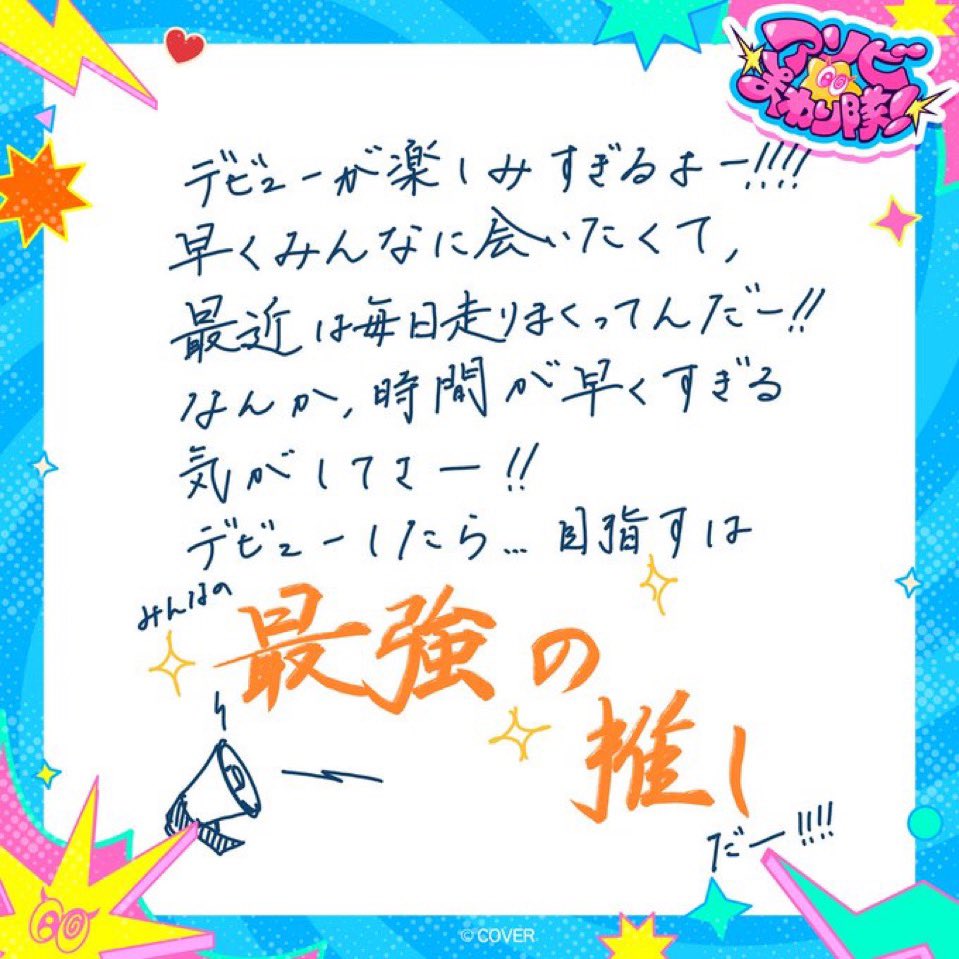 アソビ
まわり隊!
デビューが楽しみすぎるよー!!!!
早くみんなに会いたくて、
最近は毎日走りまくってんだー!!
なんか、時間が早くすぎる
気がしてさー!!
デビューしたら...目指すは
みんなの
最強の
推し
だー!!!!
© COVER